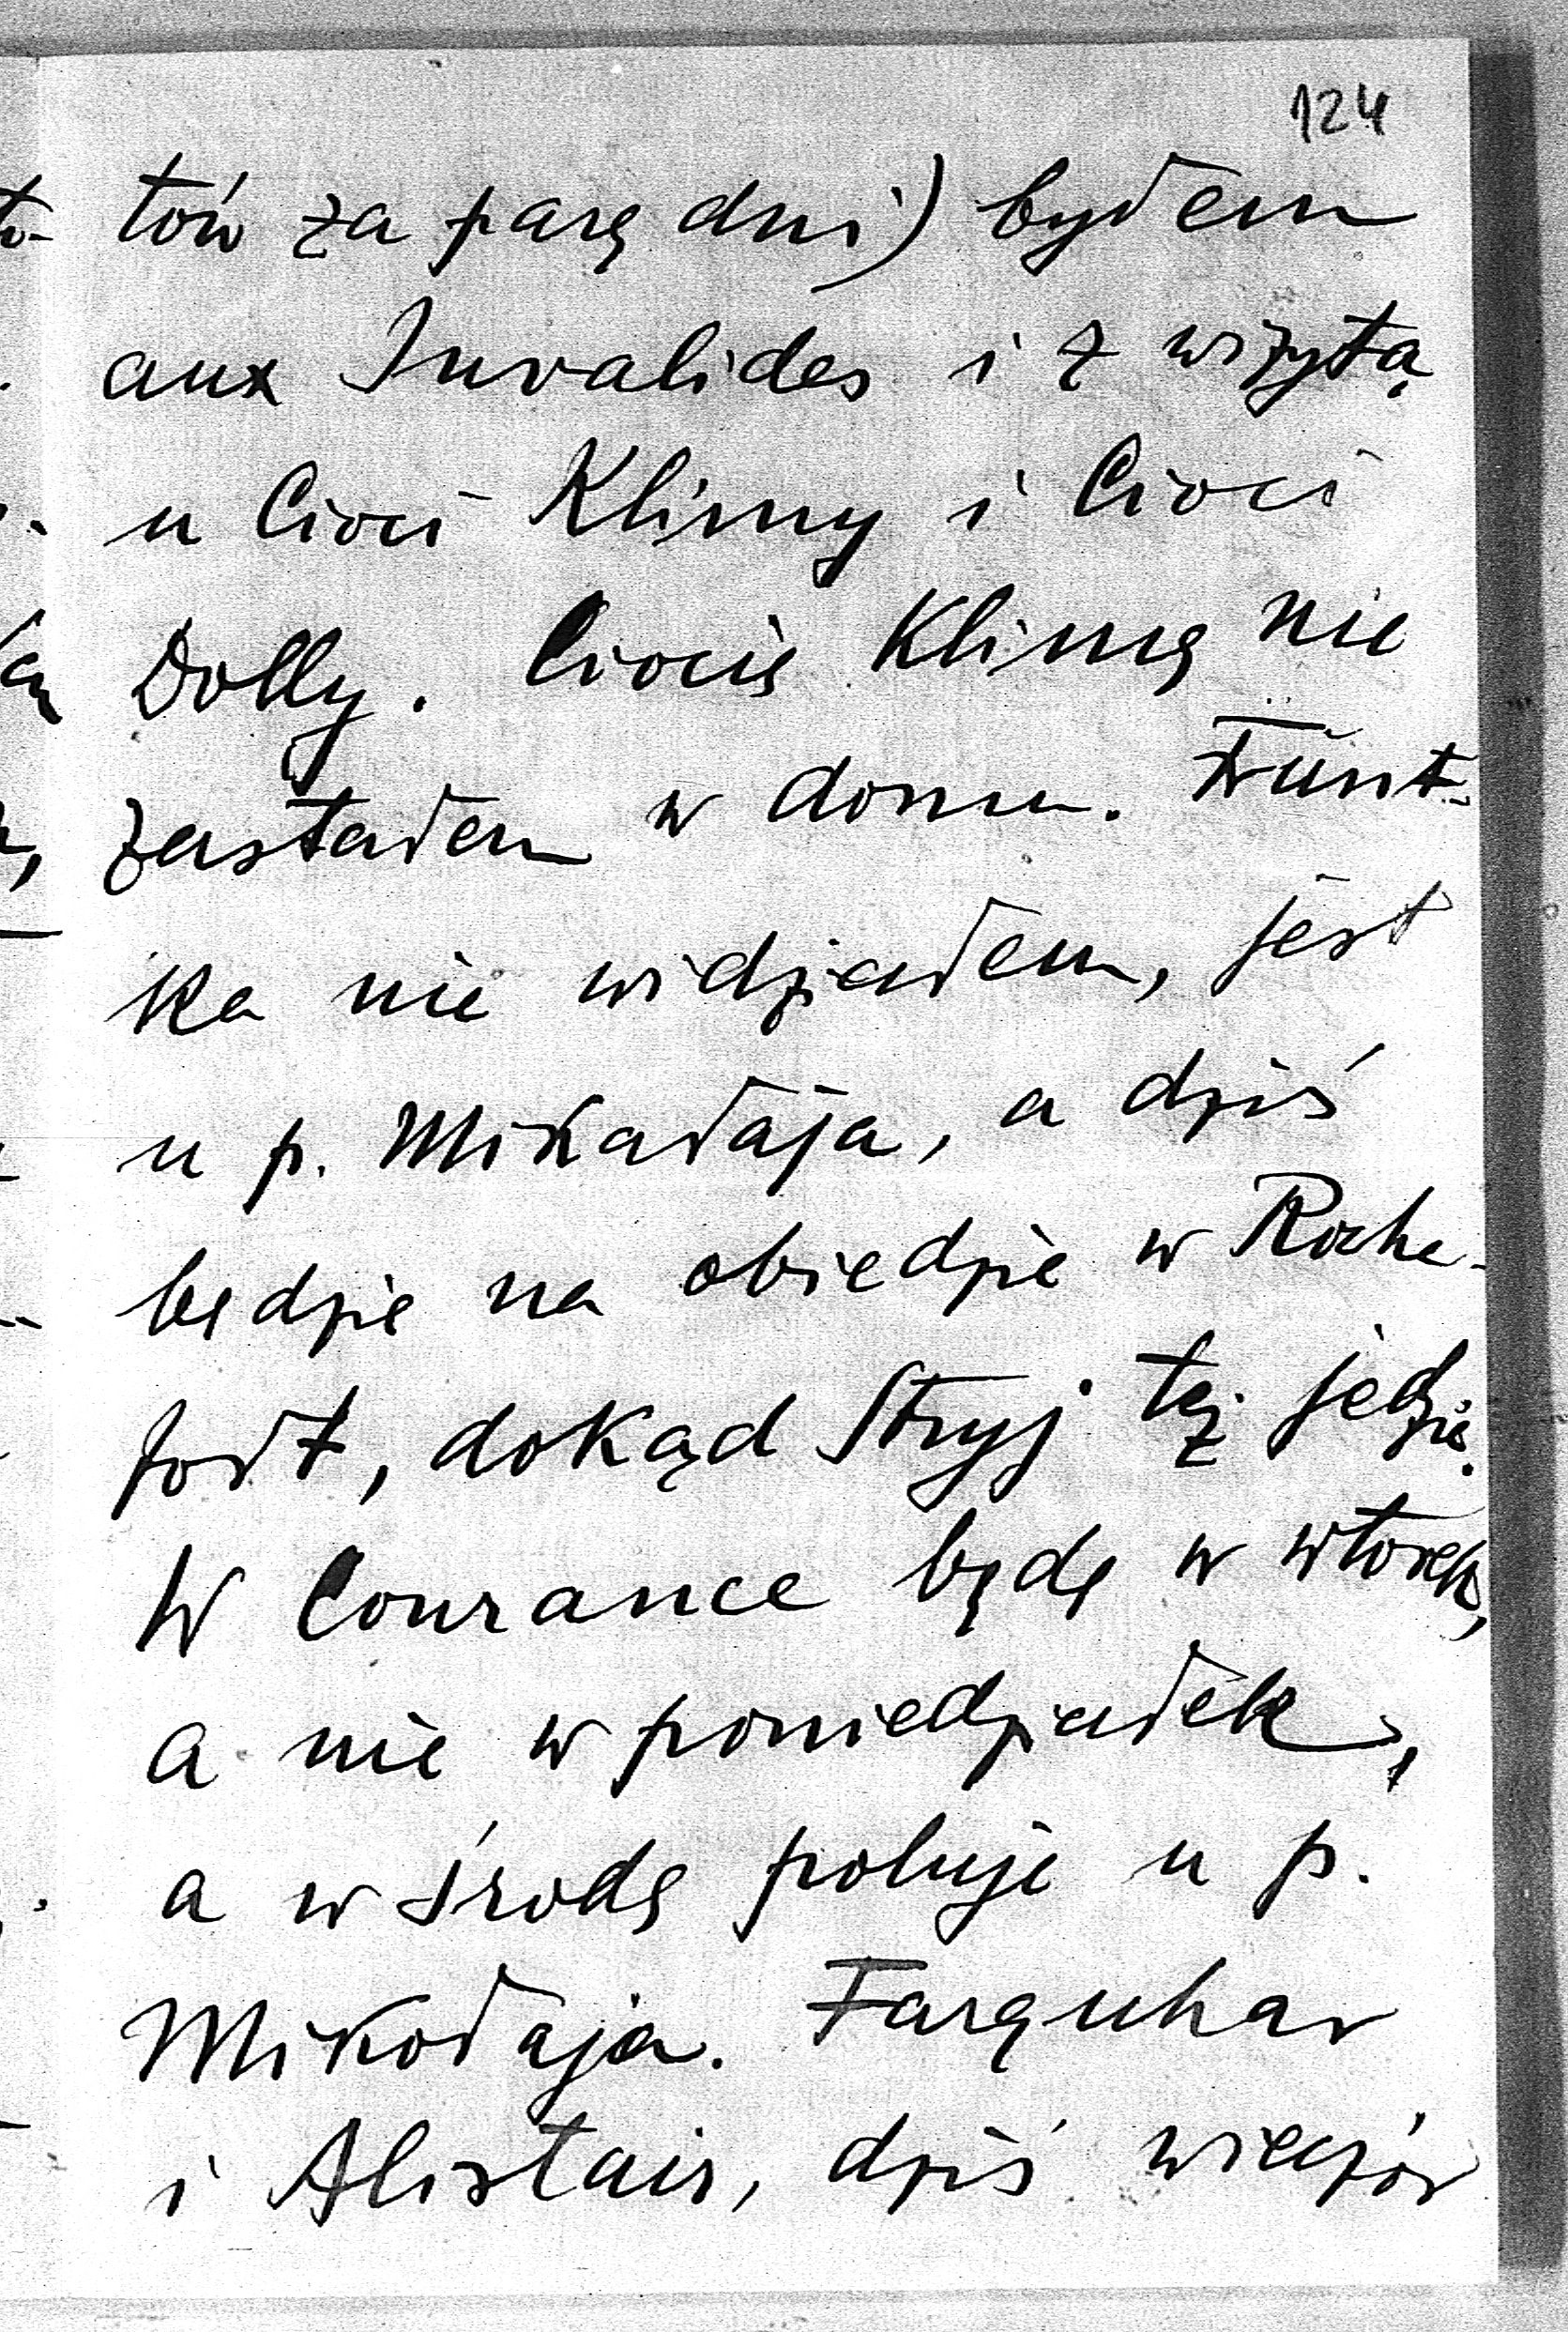 124
tów za parę dni) byłem
aux Invalides i z wizytą
u Cioci Klimy i Cioci
Dolly. Ciocię Klimę nie
zastałem w domu. Fünt-
ka nie widziałem, jest
u p. Mikałaja, a dziś
będzie na obiedzie w Roche-
fort, dokąd Stryj też jedzie.
W Courance będę w wtorek,
a nie w poniedziałek,
a w środę poluje u p.
Mikołaja. Farquhar
i Alistair, dziś wieczór